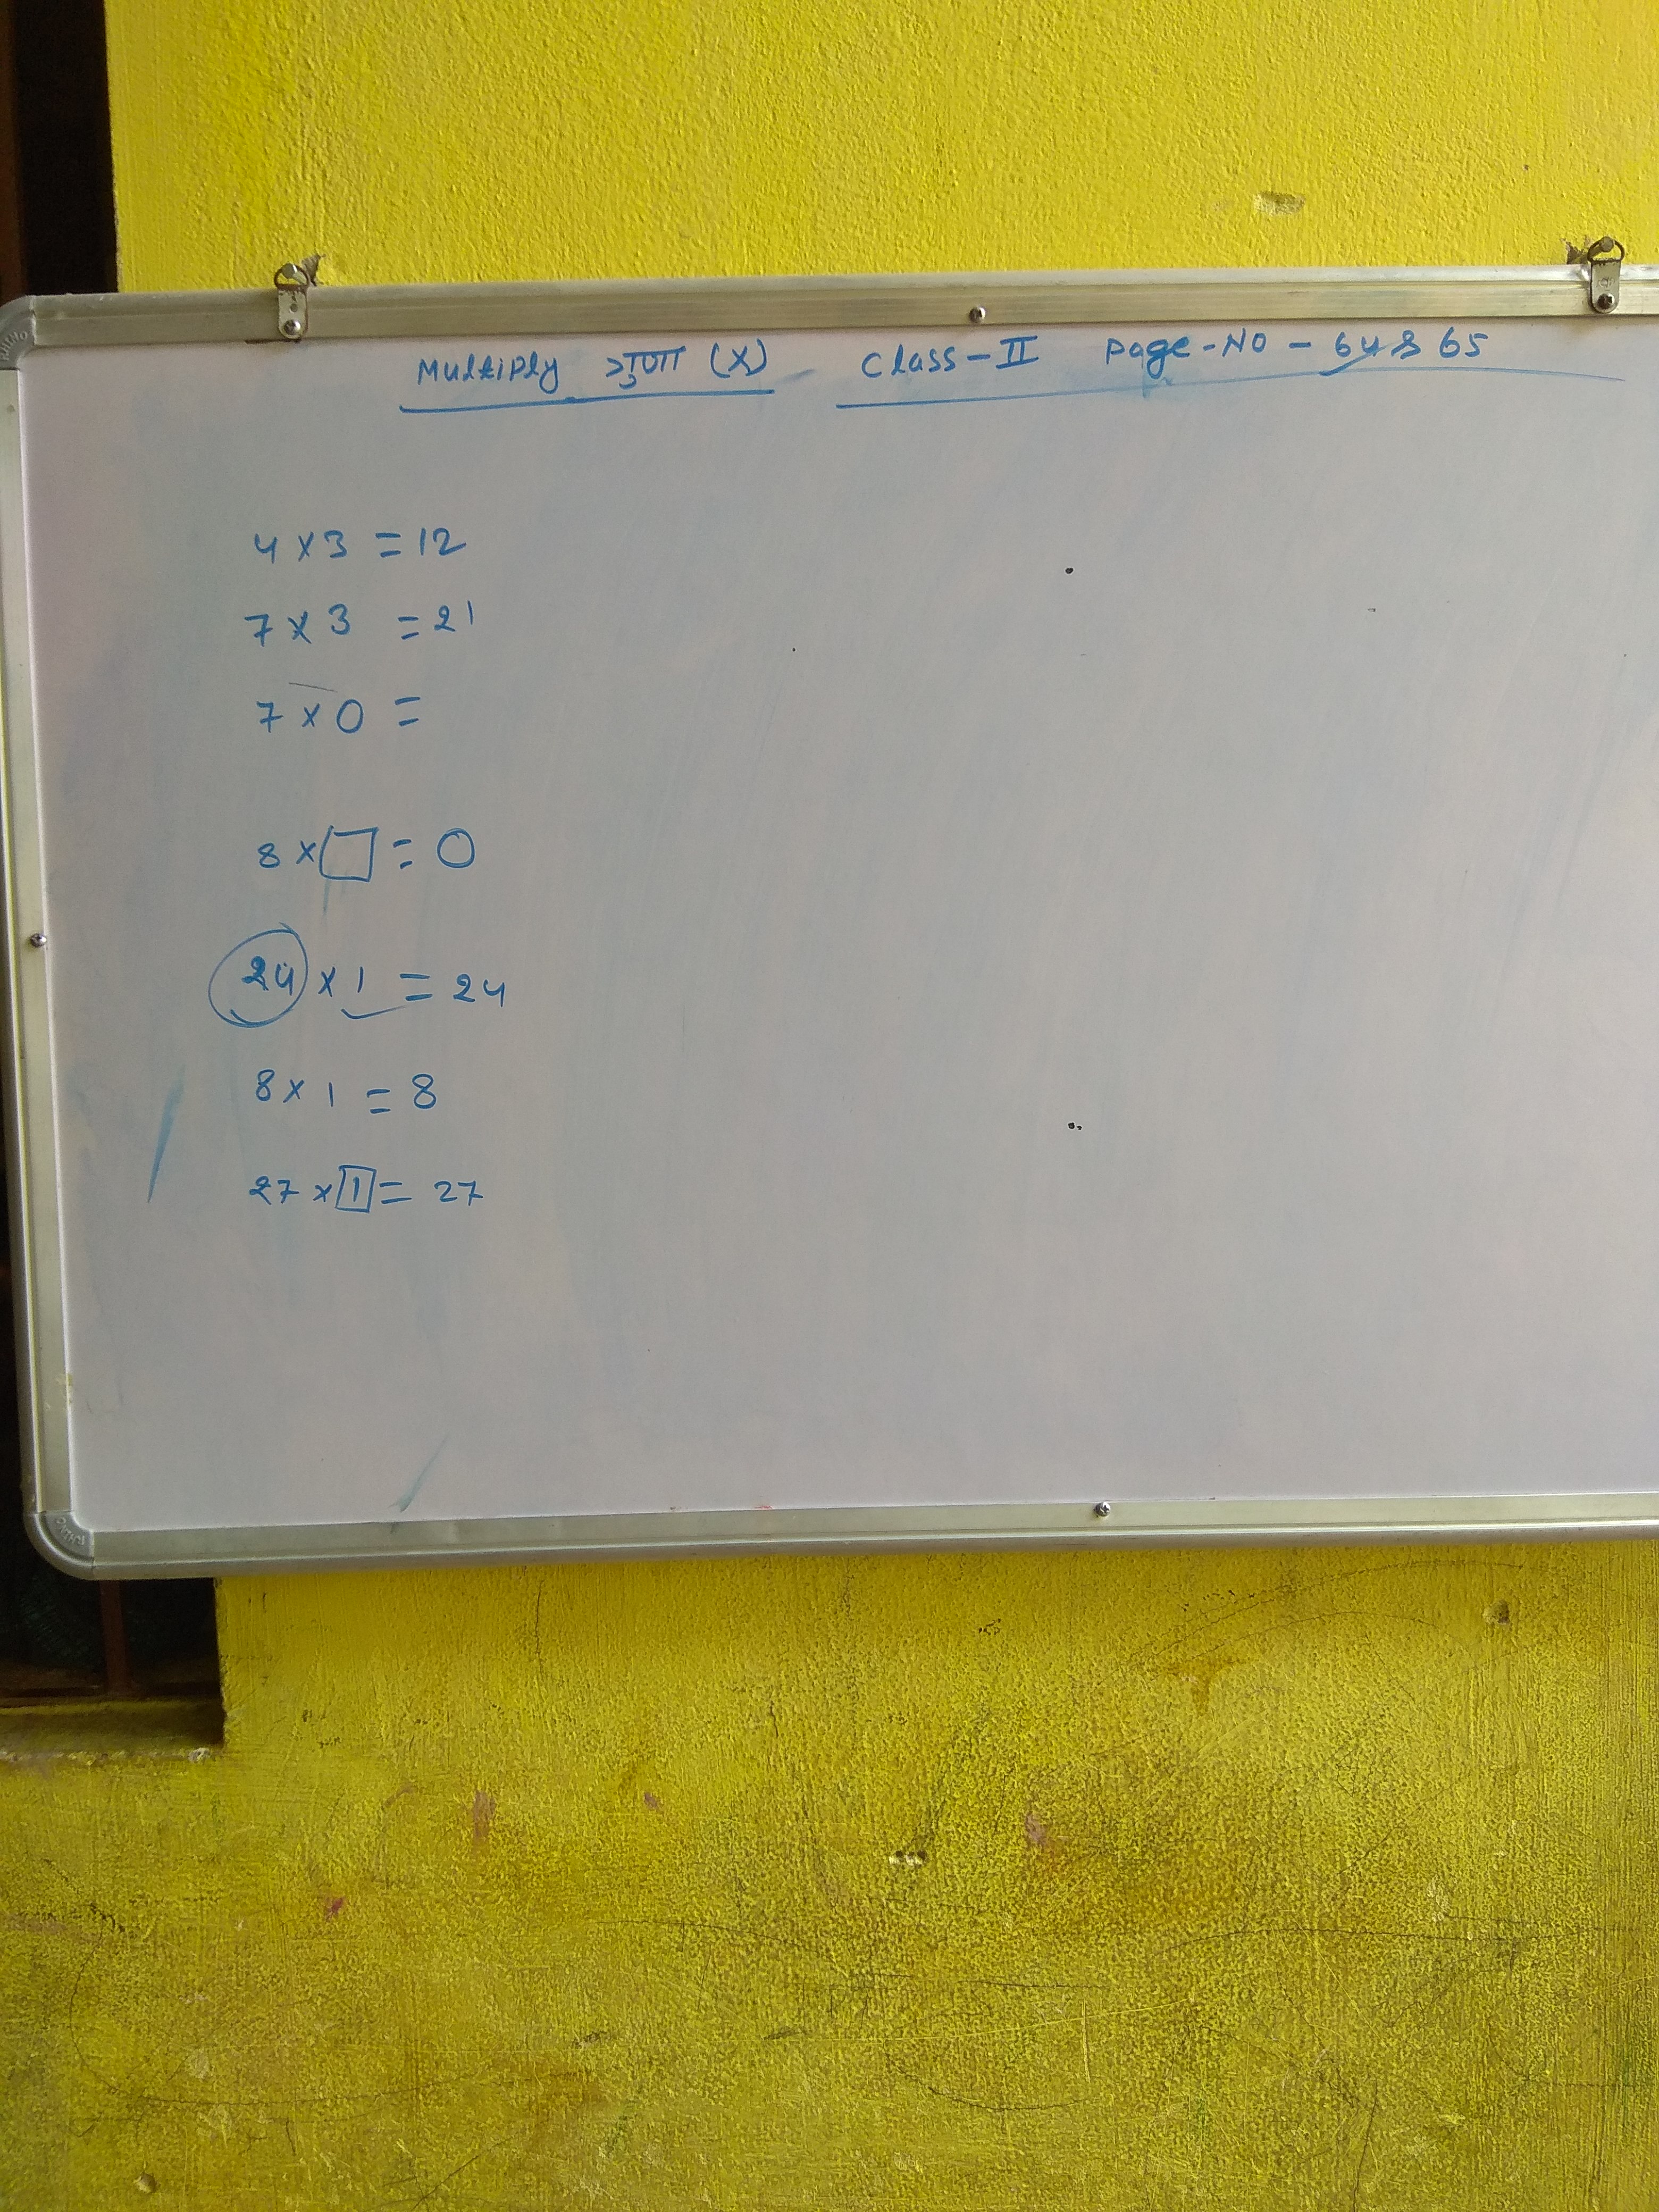 Multiply गुणा (×) Class-II Page-No - 64 & 65
4 × 3 = 12
7 × 3 = 21
7 × 0 =
8 × □ = 0
24 × 1 = 24
8 × 1 = 8
27 × 1 = 27